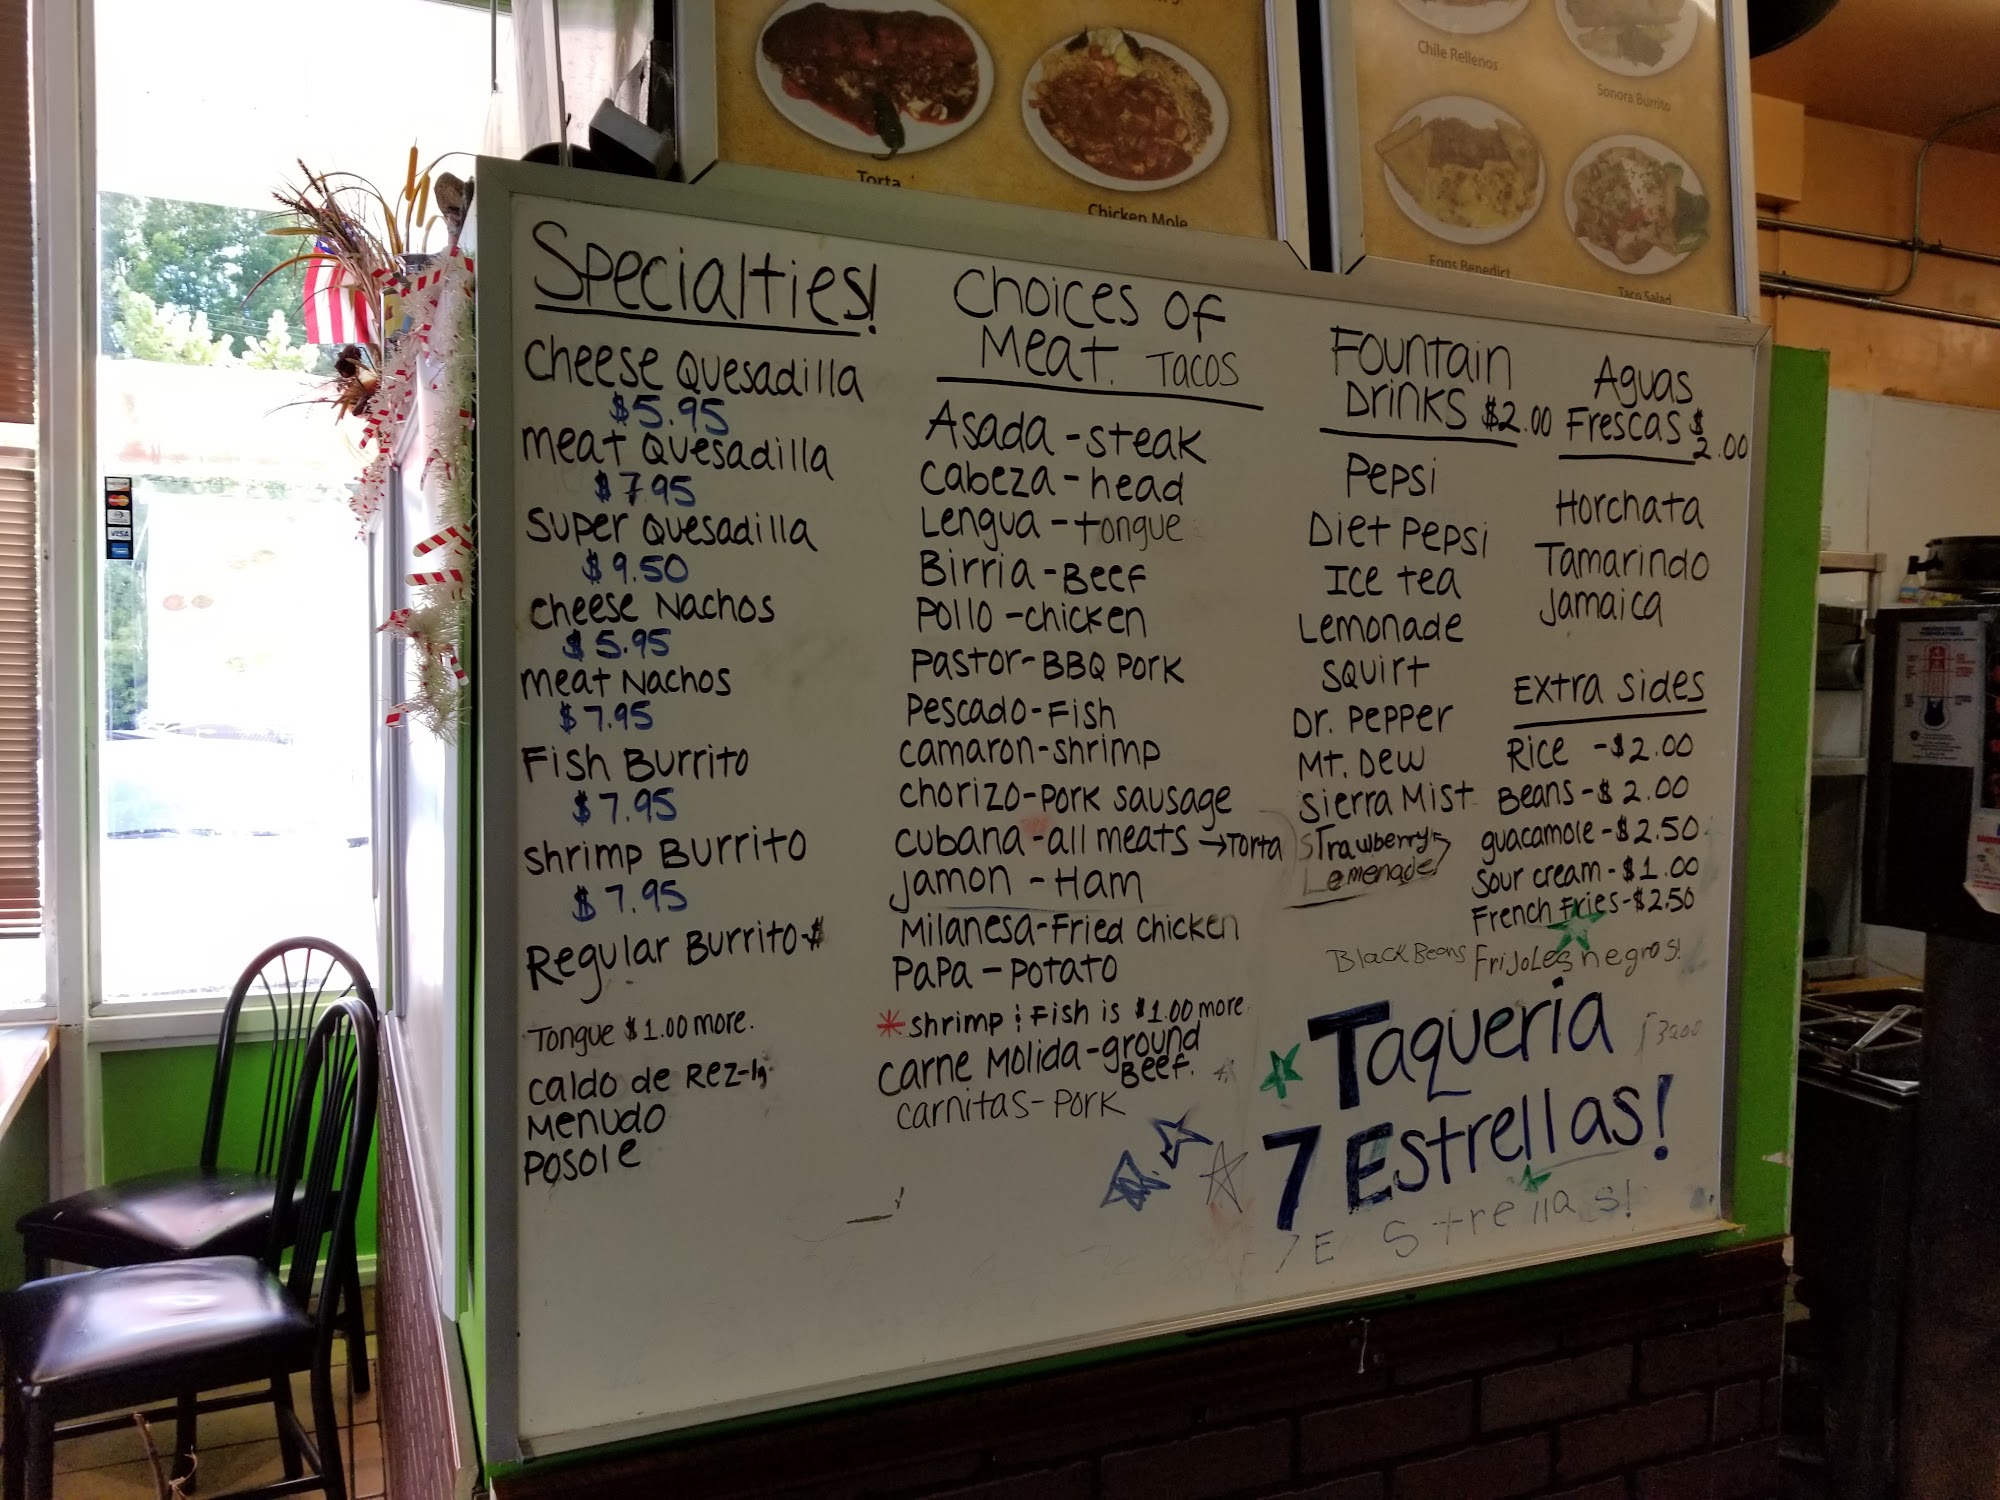 Torta
Chicken Mole
Chile Rellenos
Sonora Burrito
Eggs Benedict
Taco Salad
VISA
Specialties!
Cheese Quesadilla
$5.95
Meat Quesadilla
$7.95
Super Quesadilla
$9.50
Cheese Nachos
$5.95
Meat Nachos
$7.95
Fish Burrito
$7.95
Shrimp Burrito
$7.95
Regular Burrito-$
Tongue $1.00 more.
Caldo de Rez-
Menudo
Posole
Choices of
Meat. Tacos
Asada - steak
Cabeza - head
Lengua - tongue
Birria - Beef
Pollo - chicken
Pastor - BBQ Pork
Pescado - Fish
Camaron - shrimp
Chorizo - Pork sausage
Cubana - all meats → Torta
Jamon - Ham
Milanesa - Fried Chicken
Papa - Potato
* Shrimp & Fish is $1.00 more
Carne Molida - ground
Beef.
Carnitas - Pork
Fountain
Drinks $2.00
Pepsi
Diet Pepsi
Ice tea
Lemonade
Squirt
Dr. Pepper
Mt. Dew
Sierra Mist
Strawberry
Lemenade
Aguas
Frescas $
2.00
Horchata
Tamarindo
Jamaica
Extra sides
Rice - $2.00
Beans - $2.00
guacamole - $2.50
Sour cream - $1.00
French Fries - $2.50
Black Beans Frijoles negros!
Taqueria
7 Estrellas!
7 Estrellas!